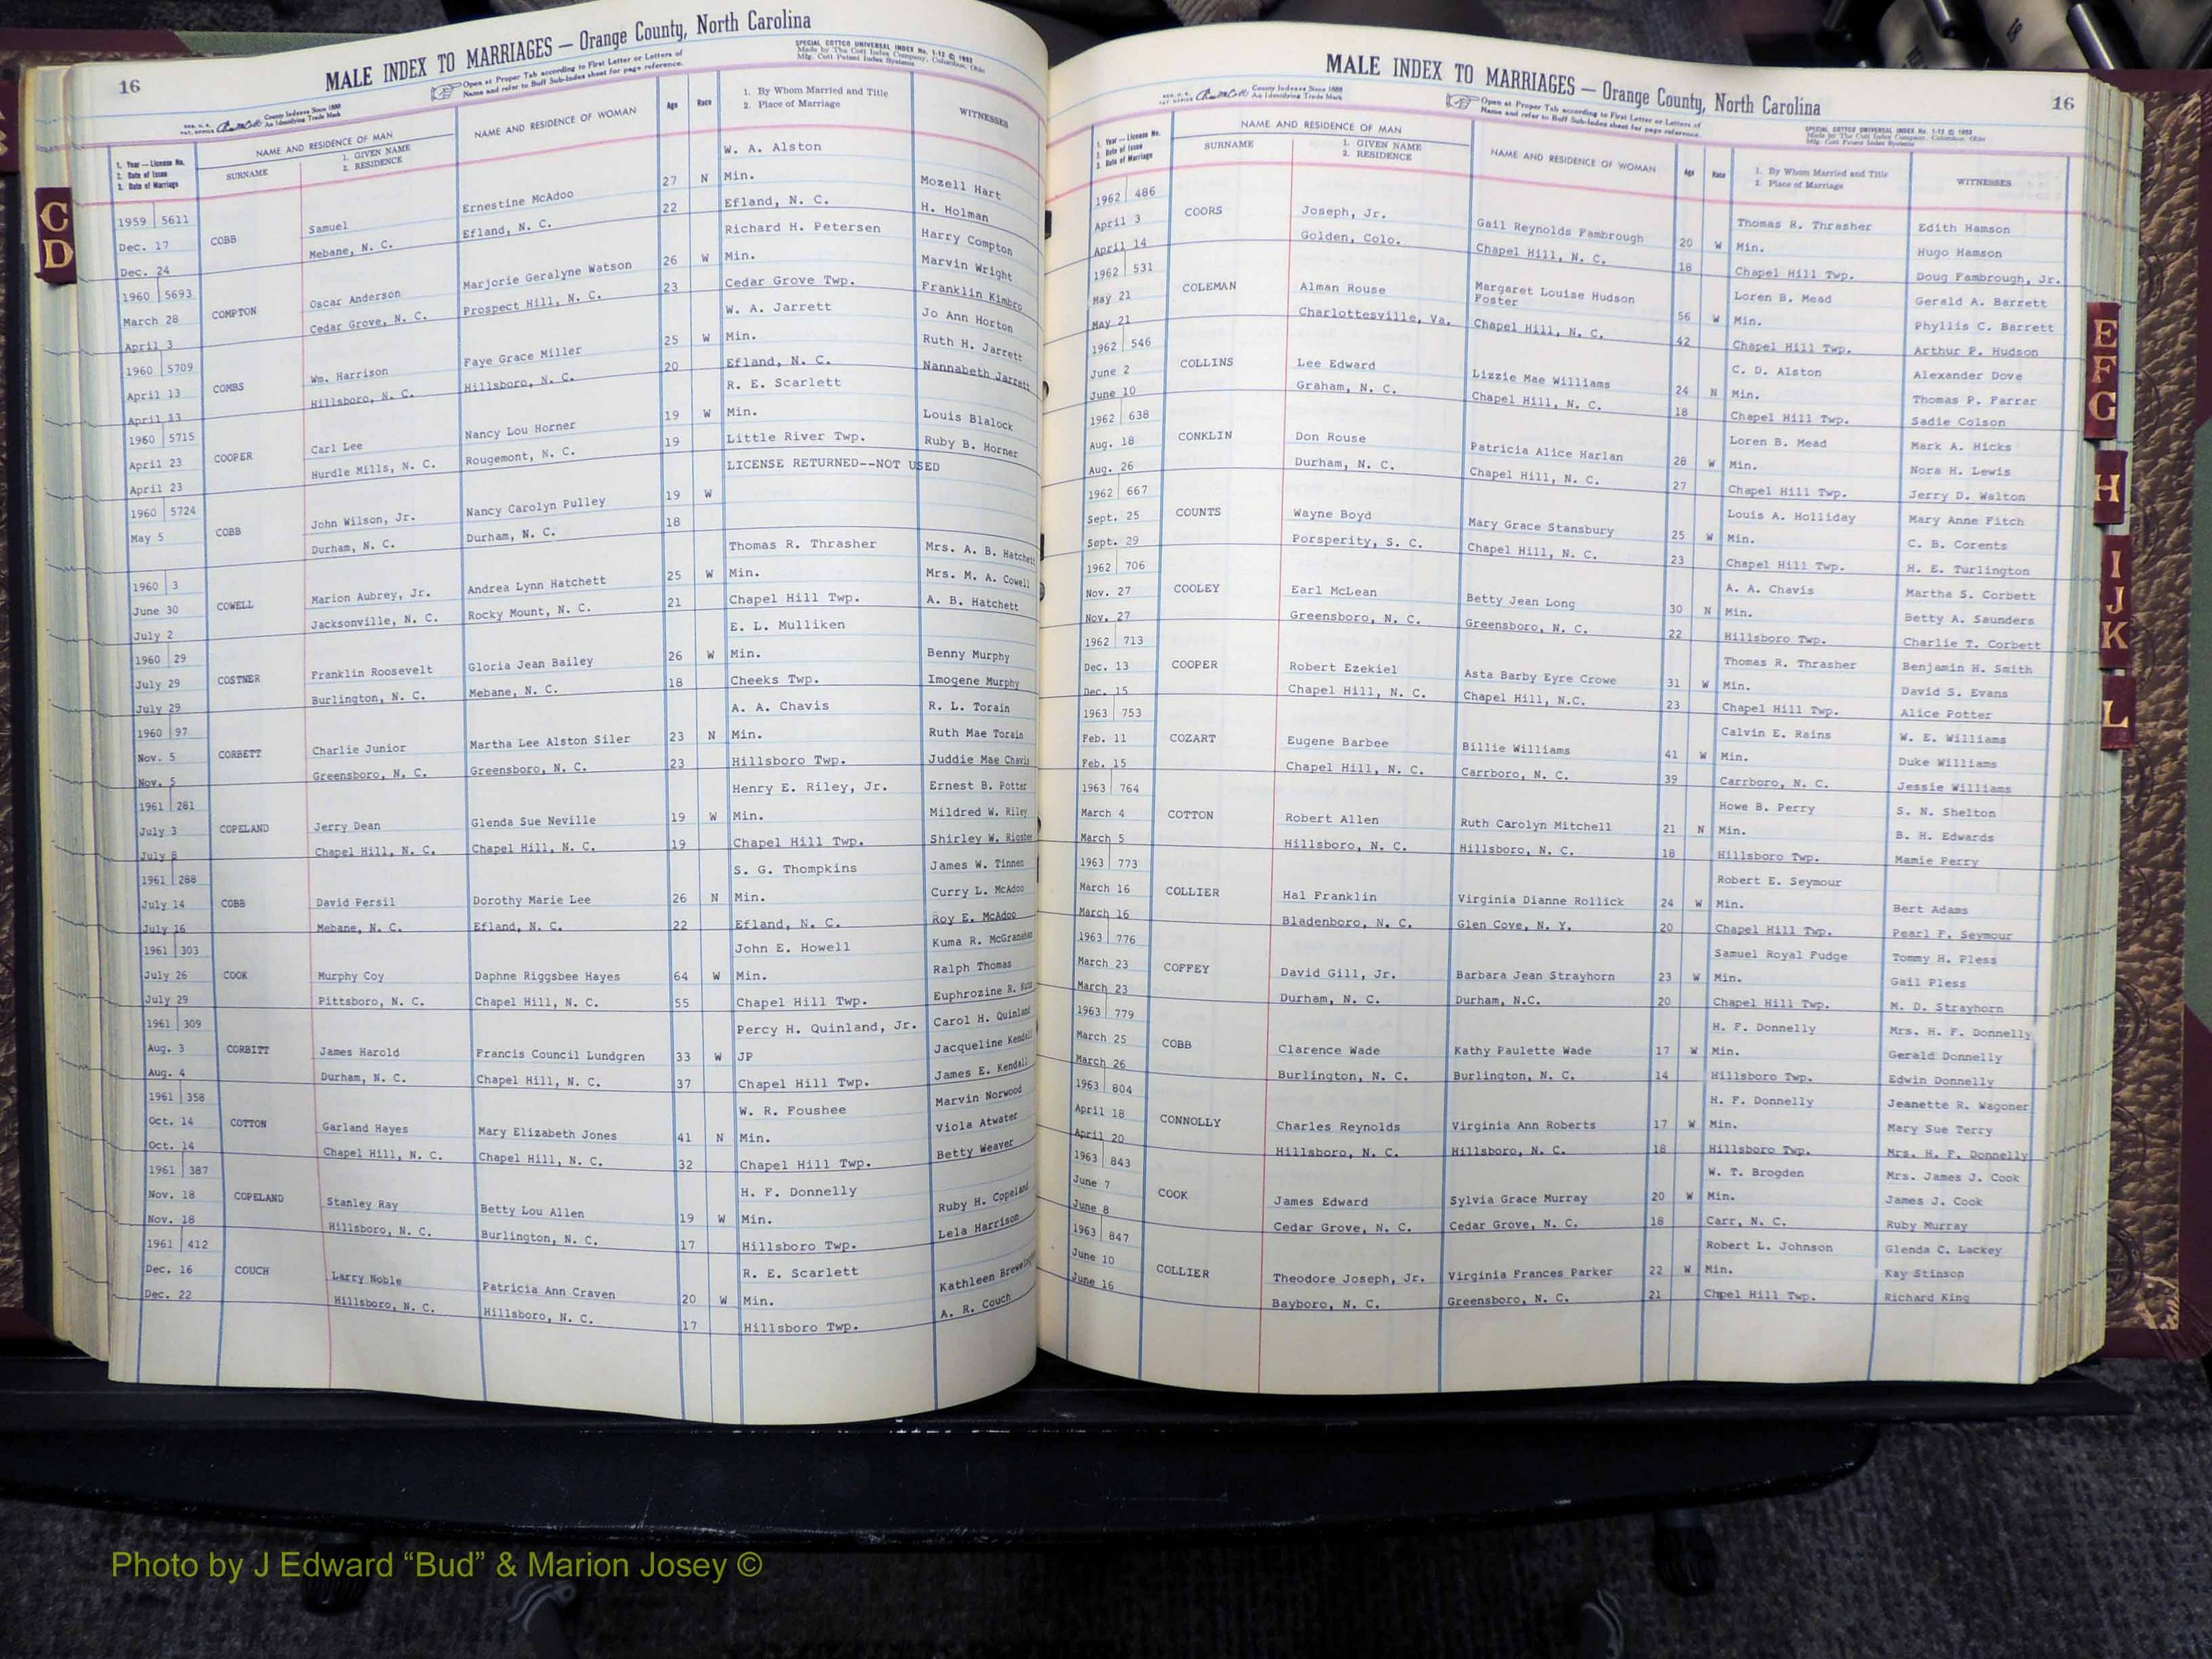 16
MALE INDEX TO MARRIAGES — Orange County, North Carolina
Open at Proper Tab according to First Letter or Letters of
Name and refer to Buff Sub-Index sheet for page reference.
SPECIAL COTTCO UNIVERSAL INDEX No. 1-12 © 1952
Made by The Cott Index Company, Columbus, Ohio
Mfg. Cott Patent Index Systems
County Indexes Since 1888
An Identifying Trade Mark
1. Year — License No.
2. Date of Issue
3. Date of Marriage
NAME AND RESIDENCE OF MAN
SURNAME
1. GIVEN NAME
2. RESIDENCE
NAME AND RESIDENCE OF WOMAN
Age
Race
1. By Whom Married and Title
2. Place of Marriage
WITNESSES
W. A. Alston
1959 5611 Samuel Ernestine McAdoo 27 N Min. Mozell Hart
Dec. 17 COBB Mebane, N. C. Efland, N. C. 22 Efland, N. C. H. Holman
Dec. 24 Richard H. Petersen Harry Compton
1960 5693 Oscar Anderson Marjorie Geralyne Watson 26 W Min. Marvin Wright
March 28 COMPTON Cedar Grove, N. C. Prospect Hill, N. C. 23 Cedar Grove Twp. Franklin Kimbro
April 3 W. A. Jarrett Jo Ann Horton
1960 5709 Wm. Harrison Faye Grace Miller 25 W Min. Ruth H. Jarrett
April 13 COMBS Hillsboro, N. C. Hillsboro, N. C. 20 Efland, N. C. Nannabeth Jarrett
April 13 R. E. Scarlett
1960 5715 Carl Lee Nancy Lou Horner 19 W Min. Louis Blalock
April 23 COOPER Hurdle Mills, N. C. Rougemont, N. C. 19 Little River Twp. Ruby B. Horner
April 23 LICENSE RETURNED--NOT USED
1960 5724 John Wilson, Jr. Nancy Carolyn Pulley 19 W
May 5 COBB Durham, N. C. Durham, N. C. 18
Thomas R. Thrasher Mrs. A. B. Hatchett
1960 3 Marion Aubrey, Jr. Andrea Lynn Hatchett 25 W Min. Mrs. M. A. Cowell
June 30 COWELL Jacksonville, N. C. Rocky Mount, N. C. 21 Chapel Hill Twp. A. B. Hatchett
July 2 E. L. Mulliken
1960 29 Franklin Roosevelt Gloria Jean Bailey 26 W Min. Benny Murphy
July 29 COSTNER Burlington, N. C. Mebane, N. C. 18 Cheeks Twp. Imogene Murphy
July 29 A. A. Chavis R. L. Torain
1960 97 Charlie Junior Martha Lee Alston Siler 23 N Min. Ruth Mae Torain
Nov. 5 CORBETT Greensboro, N. C. Greensboro, N. C. 23 Hillsboro Twp. Juddie Mae Chavis
Nov. 5 Henry E. Riley, Jr. Ernest B. Potter
1961 281 Jerry Dean Glenda Sue Neville 19 W Min. Mildred W. Riley
July 3 COPELAND Chapel Hill, N. C. Chapel Hill, N. C. 19 Chapel Hill Twp. Shirley W.
July 8 S. G. Thompkins James W. Tinnen
1961 288 Curry L. McAdoo
July 14 COBB David Persil Dorothy Marie Lee 26 N Min. Roy E. McAdoo
July 16 Mebane, N. C. Efland, N. C. 22 Efland, N. C.
1961 303 John E. Howell Kuma R.
July 26 COOK Murphy Coy Daphne Riggsbee Hayes 64 W Min. Ralph Thomas
July 29 Pittsboro, N. C. Chapel Hill, N. C. 55 Chapel Hill Twp. Euphrozine R.
1961 309 Percy H. Quinland, Jr. Carol H. Quinland
Aug. 3 CORBITT James Harold Francis Council Lundgren 33 W JP Jacqueline Kendall
Aug. 4 Durham, N. C. Chapel Hill, N. C. 37 Chapel Hill Twp. James E. Kendall
1961 358 W. R. Foushee Marvin Norwood
Oct. 14 COTTON Garland Hayes Mary Elizabeth Jones 41 N Min. Viola Atwater
Oct. 14 Chapel Hill, N. C. Chapel Hill, N. C. 32 Chapel Hill Twp. Betty Weaver
1961 387 H. F. Donnelly
Nov. 18 COPELAND Stanley Ray Betty Lou Allen 19 W Min. Ruby H. Copeland
Nov. 18 Hillsboro, N. C. Burlington, N. C. 17 Hillsboro Twp. Lela Harrison
1961 412 R. E. Scarlett
Dec. 16 COUCH Larry Noble Patricia Ann Craven 20 W Min. Kathleen
Dec. 22 Hillsboro, N. C. Hillsboro, N. C. 17 Hillsboro Twp. A. R. Couch
MALE INDEX TO MARRIAGES — Orange County, North Carolina
16
County Indexes Since 1888
An Identifying Trade Mark
Open at Proper Tab according to First Letter or Letters of
Name and refer to Buff Sub-Index sheet for page reference.
SPECIAL COTTCO UNIVERSAL INDEX No. 1-12 © 1952
Made by The Cott Index Company, Columbus, Ohio
Mfg. Cott Patent Index Systems
1. Year — License No.
2. Date of Issue
3. Date of Marriage
NAME AND RESIDENCE OF MAN
SURNAME
1. GIVEN NAME
2. RESIDENCE
NAME AND RESIDENCE OF WOMAN
Age
Race
1. By Whom Married and Title
2. Place of Marriage
WITNESSES
1962 486 Thomas R. Thrasher Edith Hamson
April 3 COORS Joseph, Jr. Gail Reynolds Fambrough 20 W Min. Hugo Hamson
April 14 Golden, Colo. Chapel Hill, N. C. 18 Chapel Hill Twp. Doug Fambrough, Jr.
1962 531 Loren B. Mead Gerald A. Barrett
May 21 COLEMAN Alman Rouse Margaret Louise Hudson Foster 56 W Min. Phyllis C. Barrett
May 21 Charlottesville, Va. Chapel Hill, N. C. 42 Chapel Hill Twp. Arthur P. Hudson
1962 546 C. D. Alston Alexander Dove
June 2 COLLINS Lee Edward Lizzie Mae Williams 24 N Min. Thomas P. Farrar
June 10 Graham, N. C. Chapel Hill, N. C. 18 Chapel Hill Twp. Sadie Colson
1962 638 Loren B. Mead Mark A. Hicks
Aug. 18 CONKLIN Don Rouse Patricia Alice Harlan 28 W Min. Nora H. Lewis
Aug. 26 Durham, N. C. Chapel Hill, N. C. 27 Chapel Hill Twp. Jerry D. Walton
1962 667 Louis A. Holliday Mary Anne Fitch
Sept. 25 COUNTS Wayne Boyd Mary Grace Stansbury 25 W Min. C. B. Corents
Sept. 29 Porsperity, S. C. Chapel Hill, N. C. 23 Chapel Hill Twp. H. E. Turlington
1962 706 A. A. Chavis Martha S. Corbett
Nov. 27 COOLEY Earl McLean Betty Jean Long 30 N Min. Betty A. Saunders
Nov. 27 Greensboro, N. C. Greensboro, N. C. 22 Hillsboro Twp. Charlie T. Corbett
1962 713 Thomas R. Thrasher Benjamin H. Smith
Dec. 13 COOPER Robert Ezekiel Asta Barby Eyre Crowe 31 W Min. David S. Evans
Dec. 15 Chapel Hill, N. C. Chapel Hill, N.C. 23 Chapel Hill Twp. Alice Potter
1963 753 Calvin E. Rains W. E. Williams
Feb. 11 COZART Eugene Barbee Billie Williams 41 W Min. Duke Williams
Feb. 15 Chapel Hill, N. C. Carrboro, N. C. 39 Carrboro, N. C. Jessie Williams
1963 764 Howe B. Perry S. N. Shelton
March 4 COTTON Robert Allen Ruth Carolyn Mitchell 21 N Min. B. H. Edwards
March 5 Hillsboro, N. C. Hillsboro, N. C. 18 Hillsboro Twp. Mamie Perry
1963 773 Robert E. Seymour
March 16 COLLIER Hal Franklin Virginia Dianne Rollick 24 W Min. Bert Adams
March 16 Bladenboro, N. C. Glen Cove, N. Y. 20 Chapel Hill Twp. Pearl F. Seymour
1963 776 Samuel Royal Fudge Tommy H. Pless
March 23 COFFEY David Gill, Jr. Barbara Jean Strayhorn 23 W Min. Gail Pless
March 23 Durham, N. C. Durham, N.C. 20 Chapel Hill Twp. M. D. Strayhorn
1963 779 H. F. Donnelly Mrs. H. F. Donnelly
March 25 COBB Clarence Wade Kathy Paulette Wade 17 W Min. Gerald Donnelly
March 26 Burlington, N. C. Burlington, N. C. 14 Hillsboro Twp. Edwin Donnelly
1963 804 H. F. Donnelly Jeanette R. Wagoner
April 18 CONNOLLY Charles Reynolds Virginia Ann Roberts 17 W Min. Mary Sue Terry
April 20 Hillsboro, N. C. Hillsboro, N. C. 18 Hillsboro Twp. Mrs. H. F. Donnelly
1963 843 W. T. Brogden Mrs. James J. Cook
June 7 COOK James Edward Sylvia Grace Murray 20 W Min. James J. Cook
June 8 Cedar Grove, N. C. Cedar Grove, N. C. 18 Carr, N. C. Ruby Murray
1963 847 Robert L. Johnson Glenda C. Lackey
June 10 COLLIER Theodore Joseph, Jr. Virginia Frances Parker 22 W Min. Kay Stinson
June 16 Bayboro, N. C. Greensboro, N. C. 21 Chpel Hill Twp. Richard King
C
D
E
F
G
H
I
J
K
L
Photo by J Edward “Bud” & Marion Josey ©